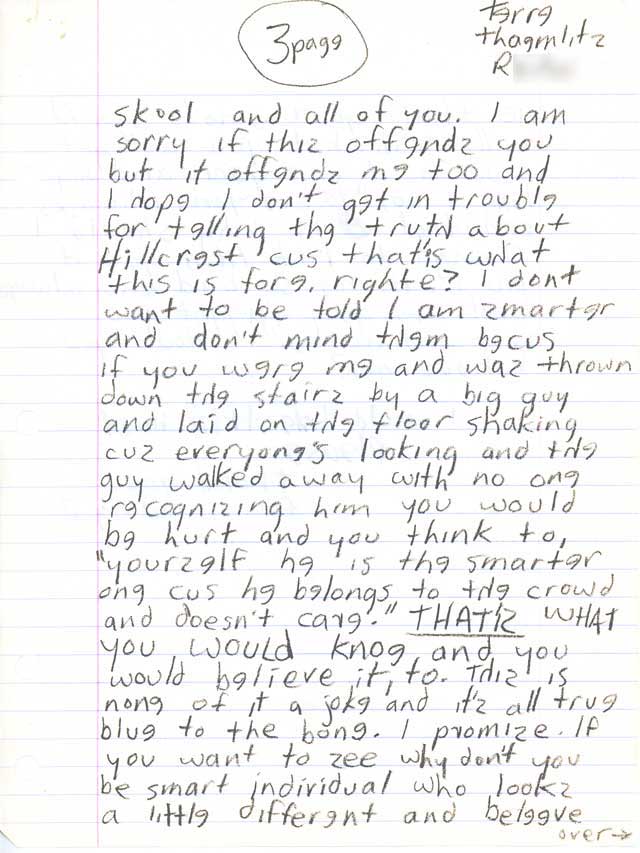 3 page
terre
thaemlitz
R
skool and all of you. I am
sorry if thiz offendz you
but it offendz me too and
I hope I don't get in trouble
for telling the truth about
Hillcrest cus that'is what
this is fore. righte? I dont
want to be told I am zmarter
and don't mind them becus
if you were me and waz thrown
down the stairz by a big guy
and laid on the floor shaking
cuz everyone's looking and the
guy walked away with no one
recognizing him you would
be hurt and you think to,
"yourzelf he is the smarter
one cus he belongs to the crowd
and doesn't care." THAT'Z WHAT
you WOULD knoe and you
would believe it, to. Thiz is
none of it a joke and it'z all true
blue to the bone. I promize. If
you want to zee why don't you
be smart individual who lookz
a little different and beleeve
over→